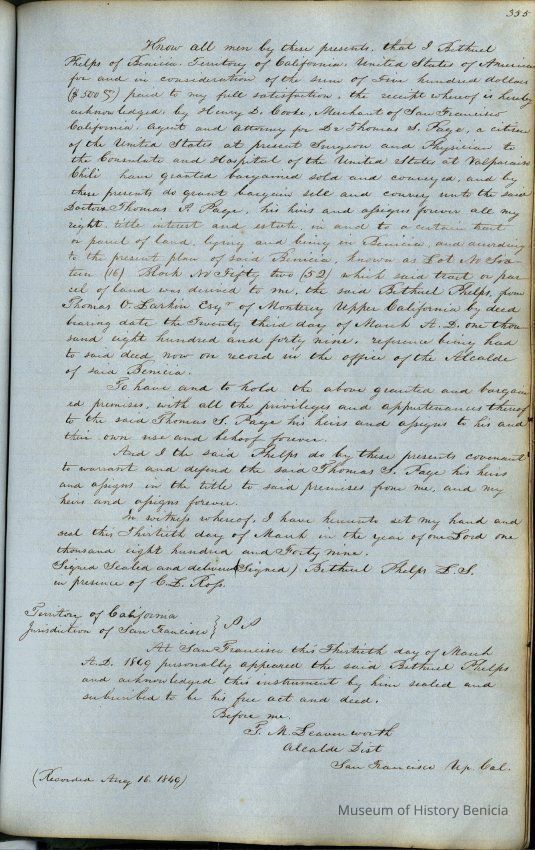 335
Know all men by these presents, that I Bethuel
Phelps of Benicia Territory of California, United States of America
for and in consideration of the sum of Five hundred dollars
($500) paid to my full satisfaction, the receipt whereof is hereby
acknowledged, by Henry D. Cooke, Merchant of San Francisco
California, agent and attorney for Dr Thomas S. Page, a citizen
of the United States at present Surgeon and Physician to
the Consulate and Hospital of the United States at Valparaiso
Chili have granted bargained sold and conveyed, and by
these presents do grant bargain sell and convey unto the said
Doctor Thomas S. Page, his heirs and assigns forever all my
right, title interest and estate, in and to a certain tract
or parcel of land, lying and being in Benicia, and according
to the present plan of said Benicia, known as Lot No Six-
teen (16) Block No Fifty two (52) which said tract or par
cel of land was derived to me, the said Bethuel Phelps, from
Thomas O. Larkin Esqr of Monterey Upper California by deed
bearing date the Twenty third day of March A.D. one thou
sand eight hundred and forty nine, reference being had
to said deed now on record in the office of the Alcalde
of said Benicia.
To have and to hold the above granted and bargain
ed premises, with all the privileges and appurtenances thereof
to the said Thomas S. Page his heirs and assigns to his and
their own use and behoof forever.
And I the said Phelps do by these presents covenant
to warrant and defend the said Thomas S. Page his heirs
and assigns in the title to said premises from me, and my
heirs and assigns forever.
In witness whereof, I have hereunto set my hand and
seal this Thirtieth day of March in the year of our Lord one
thousand eight hundred and Forty nine.
Signed Sealed and delivered (Signed) Bethuel Phelps L.S.
in presence of C. L. Ross.
Territory of California
Jurisdiction of San Francisco } SS
At San Francisco this Thirtieth day of March
A.D. 1849 personally appeared the said Bethuel Phelps
and acknowledged this instrument by him sealed and
subscribed to be his free act and deed.
Before me.
T. M. Leavenworth
Alcalde Dist
San Francisco Up. Cal.
(Recorded Aug 16. 1849)
Museum of History Benicia